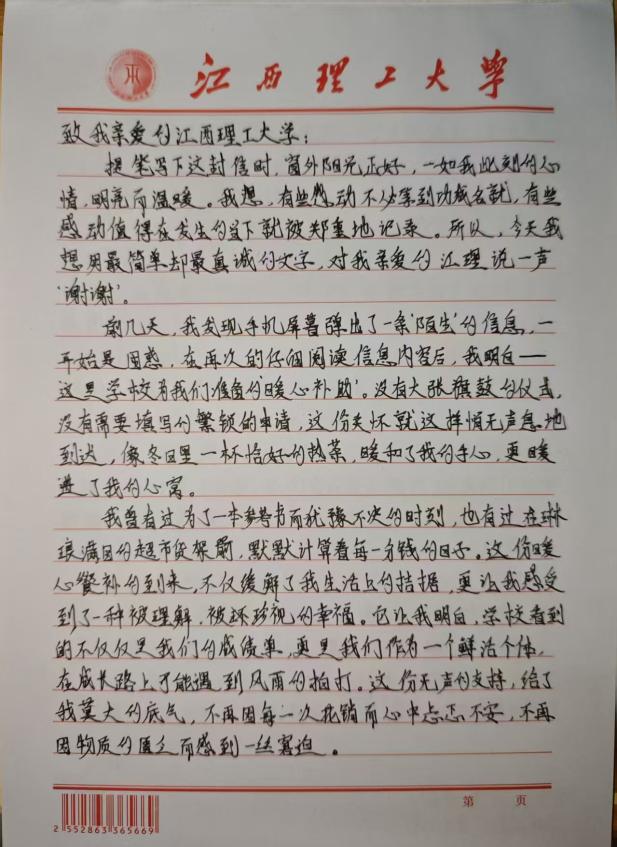 江西理工大学
致我亲爱的江西理工大学：
提笔写下这封信时，窗外阳光正好，一如我此刻的心
情，明亮而温暖。我想，有些感动不必等到功成名就，有些
感动值得在发生的当下就被郑重地记录。所以，今天我
想用最简单却最真诚的文字，对我亲爱的江理说一声
‘谢谢’。
前几天，我发现手机屏幕弹出了一条‘陌生’的信息，一
开始是困惑，在再次的仔细阅读信息内容后，我明白——
这是学校为我们准备的‘暖心补助’。没有大张旗鼓的仪式，
没有需要填写的繁锁的申请，这份关怀就这样悄无声息地
到达，像冬日里一杯恰好的热茶，暖和了我的手心，更暖
进了我的心窝。
我曾有过为了一本参考书而犹豫不决的时刻，也有过在琳
琅满目的超市货架前，默默计算着每一分钱的日子。这份暖
心餐补的到来，不仅缓解了我生活上的拮据，更让我感受
到了一种被理解、被珍视的幸福。它让我明白，学校看到
的不仅仅是我们的成绩单，更是我们作为一个鲜活个体，
在成长路上可能遇到风雨的拍打。这份无声的支持，给了
我莫大的底气，不再因每一次花销而心中忐忑不安，不再
因物质的匮乏而感到一丝窘迫。
第 页
2 552863 365669